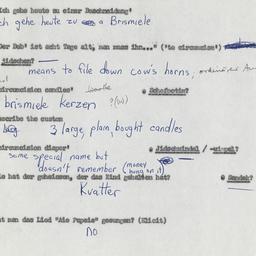 Ich gehe heute zu einer Beschneidung'
ich gehe heute zu a Brismiele
Der Bub' ist acht Tage alt, man muss ihn..." ('to circumcise')
jüdschen?
means to file down cow's horns,
circumcision candles' @ Schofoetin?
brismiele kerzen ?(w)
describe the custom
3 large, plain, bought candles
circumcision diaper' @ Jüdschwindel / -wimpel?
some special name but doesn't remember (money hung on it)
ie hat der geheissen, der das Kind gehalten hat? @ Sandek?
Kvatter
at man das Lied "Aie Pupeie" gesungen? (Elicit)
no